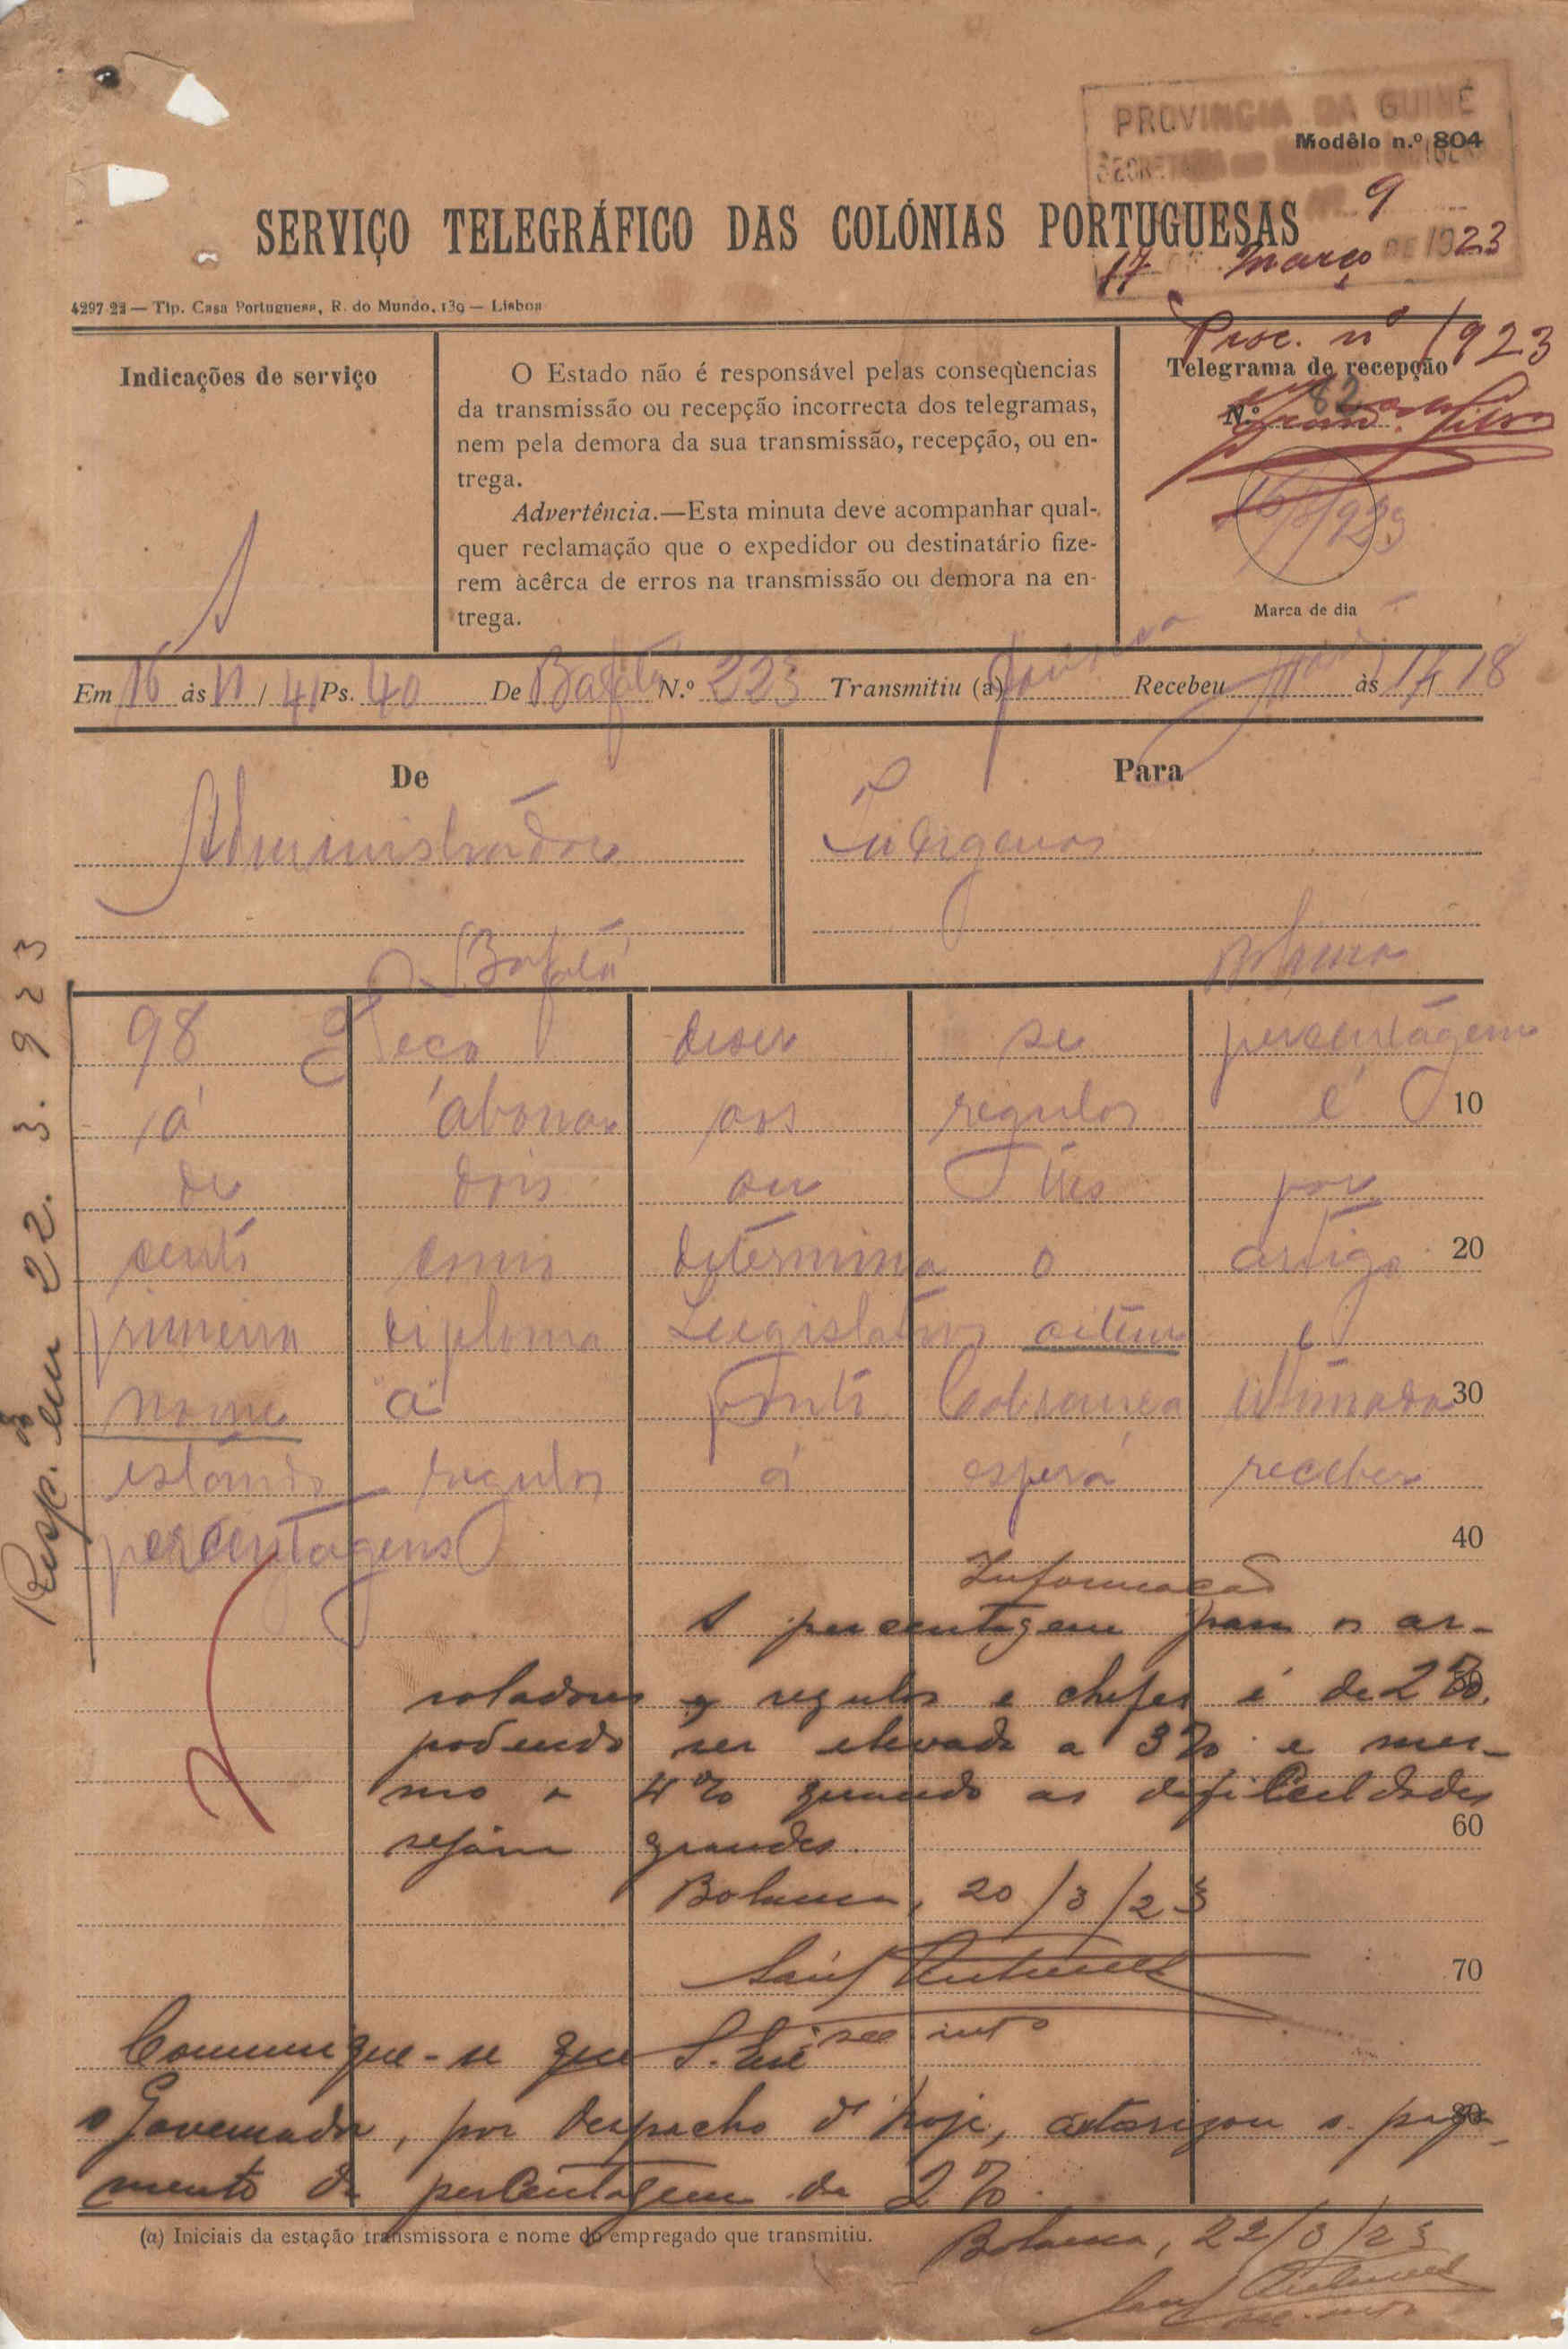 PROVINCIA DA GUINÉ
Modêlo n.º 804
SECRETARIA
9
SERVIÇO TELEGRÁFICO DAS COLÓNIAS PORTUGUESAS
17 Março DE 1923
4297-22 — Tip. Casa Portuguesa, R. do Mundo, 139 — Lisboa
Proc. nº 1923
Indicações de serviço
O Estado não é responsável pelas conseqùencias
da transmissão ou recepção incorrecta dos telegramas,
nem pela demora da sua transmissão, recepção, ou en-
trega.
Advertência.—Esta minuta deve acompanhar qual-
quer reclamação que o expedidor ou destinatário fize-
rem àcêrca de erros na transmissão ou demora na en-
trega.
Telegrama de recepção
N.º 82
16/3/923
Marca de dia
Em 16 às 11 / 41 Ps. 40 De Bafatá N.º 223 Transmitiu (a) Recebeu às 17/18
De
Para
Administrador
Indigenas
Bafatá
Bolama
98 Peço diser se percentágem
á abonar aos regulos é 10
de dois ou três por
cento como determina o artigo 20
primeiro diploma Legislativo oitenta e
nome a ponto Cobrança ultimada 30
estando regulos á espera receber
percentagens
40
Informação
A percentagem para os ar-
roladores e regulos e chefes é de 2%, 50
podendo ser elevada a 3% e mes-
mo a 4% quando as dificuldades
sejam grandes. 60
Bolama, 20/3/23
70
sec. intº
Comunique-se que S. Exª
o Governador, por despacho d'hoje, autorizou o paga- 80
mento da percentagem de 2%.
(a) Iniciais da estação transmissora e nome do empregado que transmitiu.
Bolama, 22/3/23
sec. intº
Resp. em 22. 3. 923